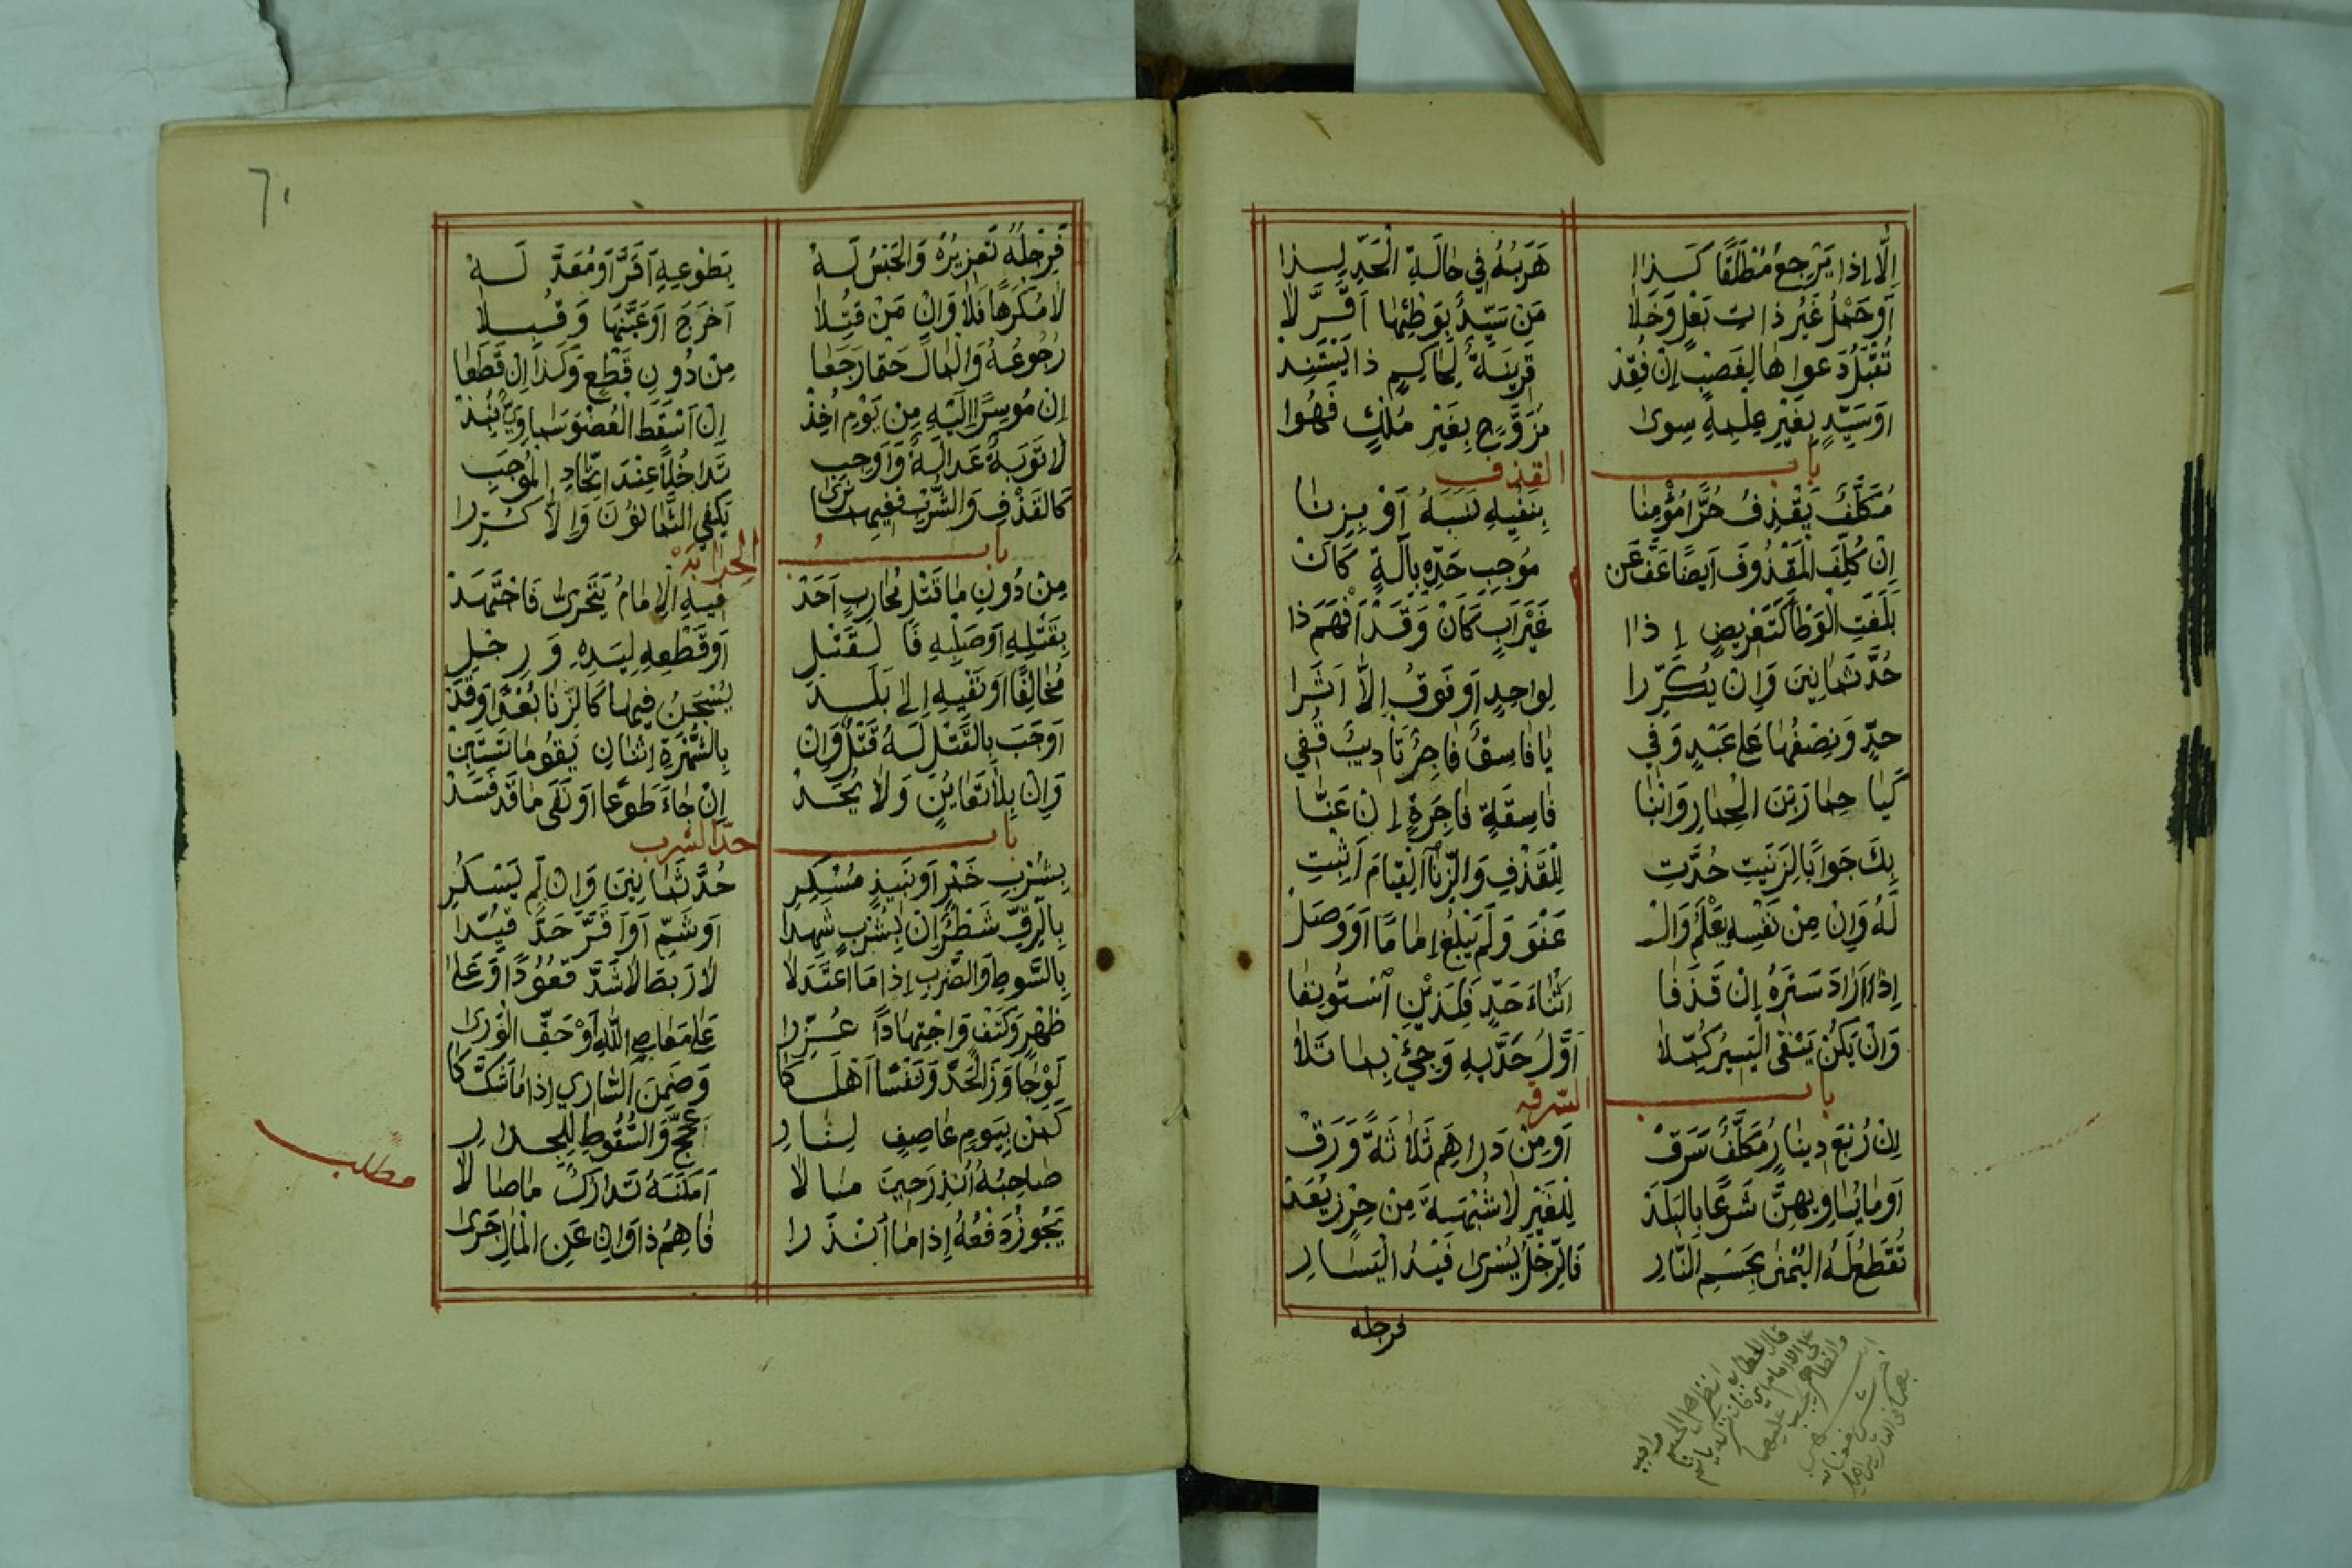 إِلَّا إِذَا يَرْجِعُ مُطْلَقًا كَذَا هَرَبُهُ فِي حَالَةِ الْحَدِّ لِذَا
أَوْ حَمْلُ غَيْرِ ذَاتِ بَعْلٍ وَخَلَا مَنْ سَيِّدٌ بِوَطْئِهَا أَقَرَّ لَا
تُقْبَلُ دَعْوَاهَا لِغَصْبٍ إِنْ فُقِدْ قَرِينَةٌ لِحَاكِمٍ ذَا يَسْتَنِدْ
أَوْ سَيِّدٍ بِغَيْرِ عِلْمِهِ سِوَى مُزَوَّجٍ بِغَيْرِ مُلْكٍ فَهُوَا
باب القذف
مُكَلَّفٌ يَقْذِفُ حُرًّا مُؤْمِنَا بِنَفْيِهِ نَسَبَهُ أَوْ بِزِنَا
إِنْ كُلِّفَ الْمَقْذُوفُ أَيْضًا عَفَّ عَنْ مُوجِبِ حَدِّهِ بِآلَةٍ كَأَنْ
بَلَغَتِ الْوَطْأَ كَتَعْرِيضٍ إِذَا غَيْرَ أَبٍ كَانَ وَقَدْ أَفْهَمَ ذَا
حُدَّ ثَمَانِينَ وَإِنْ يُكَرِّرَا لِوَاحِدٍ أَوْ فَوْقُ إِلَّا أَثَرَا
حَدٍّ وَنِصْفُهَا عَلَى عَبْدٍ وَفِي يَا فَاسِقٌ فَاجِرُ تَأْدِيبٌ قُفِي
كَيَا حِمَارُ بْنَ الْحِمَارِ وَابْنَا فَاسِقَةٍ فَاجِرَةٍ إِنْ عَنَّا
بِكَ جَوَابًا لِزَنَيْتِ حُدَّتِ لِلْقَذْفِ وَالزِّنَا الْقِيَامَ أَثْبِتِ
لَهُ وَإِنْ مِنْ نَفْسِهِ يَعْلَمُ وَالْـ عَفْوَ وَلَمْ يَبْلُغْ إِمَامًا أَوْ وَصَلْ
إِذَا أَرَادَ سَتْرَهُ إِنْ قَذَفَا أَثْنَاءَ حَدٍّ فَلِذَيْنِ اسْتُؤْنِفَا
وَإِنْ يَكُنْ يَبْقَى الْيَسِيرُ كُمِّلَا أَوَّلُ حَدَّيْهِ وَجِيءَ بِمَا تَلَا
باب السرقه
إِنْ رُبْعَ دِينَارٍ مُكَلَّفٌ سَرَقْ أَوْ مِنْ دَرَاهِمَ ثَلَاثَةً وَرَقْ
أَوْ مَا يُسَاوِيهِنَّ شَرْعًا بِالْبَلَدْ لِلْغَيْرِ لَا شُبْهَةَ مِنْ حِرْزٍ يُعَدْ
تُقْطَعُ لَهُ الْيُمْنَى بِحَسْمِ النَّارِ فَالرِّجْلُ يُسْرَى فَيَدُ الْيَسَارِ
فرجله
٦٠
فَرِجْلُهُ تَعْزِيرُهُ وَالْحَبْسُ لَهْ بِطَوْعِهِ أَقَرَّ أَوْ مُعَدَّ لَهْ
لَا مُكْرَهًا فَلَا وَإِنْ مَنْ قَتَلَا أَخْرَجَ أَوْ عَيَّنَهَا وَقُبِلَا
رُجُوعُهُ وَالْمَالَ حَقًّا رَجَعَا مِنْ دُونِ قَطْعٍ وَكَذَا إِنْ قَطَعَا
إِنْ مُوسِرًا إِلَيْهِ مِنْ يَوْمِ أُخِذْ إِنْ أَسْقَطَ الْعُضْوَ سَمَاوِيٌّ نُبِذْ
لَا تَوْبَةٌ عَدَالَةٌ وَأَوْجِبِ تَدَاخُلًا عِنْدَ اتِّحَادِ الْمُوجِبِ
كَالْقَذْفِ وَالشُّرْبِ فَفِيهِمَا نَرَى يَكْفِي الثَّمَانُونَ وَإِلَّا كَرِّرَا
باب الحرابة
مِنْ دُونِ مَا قَتْلِ مُحَارِبٍ أَحَدْ فِيهِ الْإِمَامُ يَتَحَرَّى فَاجْتَهَدْ
بِقَتْلِهِ أَوْ صَلْبِهِ فَالْقَتْلِ أَوْ قَطْعِهِ لِيَدِهِ وَرِجْلِ
مُخَالِفًا أَوْ نَفْيِهِ إِلَى بَلَدْ يُسْجَنُ فِيهَا كَالزِّنَا بُعْدًا وَقَدْ
أَوْجَبَ بِالْقَتْلِ لَهُ قَتْلٌ وَإِنْ بِالشُّهْرَةِ اثْنَانِ يَقُومَا تَسْتَبِنْ
وَإِنْ بِلَا تَعَايُنٍ وَلَا يُحَدْ إِنْ جَاءَ طَوْعًا أَوْ نَفَى مَا قَدْ فَسَدْ
باب حد الشرب
بِشُرْبِ خَمْرٍ أَوْ نَبِيذٍ مُسْكِرِ حُدَّ ثَمَانِينَ وَإِنْ لَمْ يَسْكَرِ
بِالرِّقِّ شَطْرٌ إِنْ بِشُرْبٍ شَهِدَا أَوْ شَمٍّ أَوْ أَقَرَّ حَدٌّ قُيِّدَا
بِالسَّوْطِ وَالضَّرْبِ إِذَا مَا اعْتَدَلَا لَا رَبْطَ لَا شَدَّ قُعُودًا وَعَلَى
ظَهْرٍ وَكَتْفٍ وَاجْتِهَادًا عُزِّرَا عَلَى مَعَاصِ اللهِ أَوْ حَقِّ الْوَرَى
لَوْ جَاوَزَ الْحَدَّ وَنَفْسًا أَهْلَكَا وَضَمِنَ السَّارِي إِذَا مَا شَكَّكَا
كَمَنْ بِيَوْمٍ عَاصِفٍ لِنَارِ أَجَّجَ وَالسُّقُوطِ لِلْجِدَارِ
صَاحِبُهُ أُنْذِرَ حِينَ مَالَا أَمْكَنَهُ تَدَارُكٌ مَا صَالَا
يَجُوزُ دَفْعُهُ إِذَا مَا أَنْذَرَا فَاهِمُ ذَا وَإِنْ عَنِ الْمَالِ جَرَى
مطلب